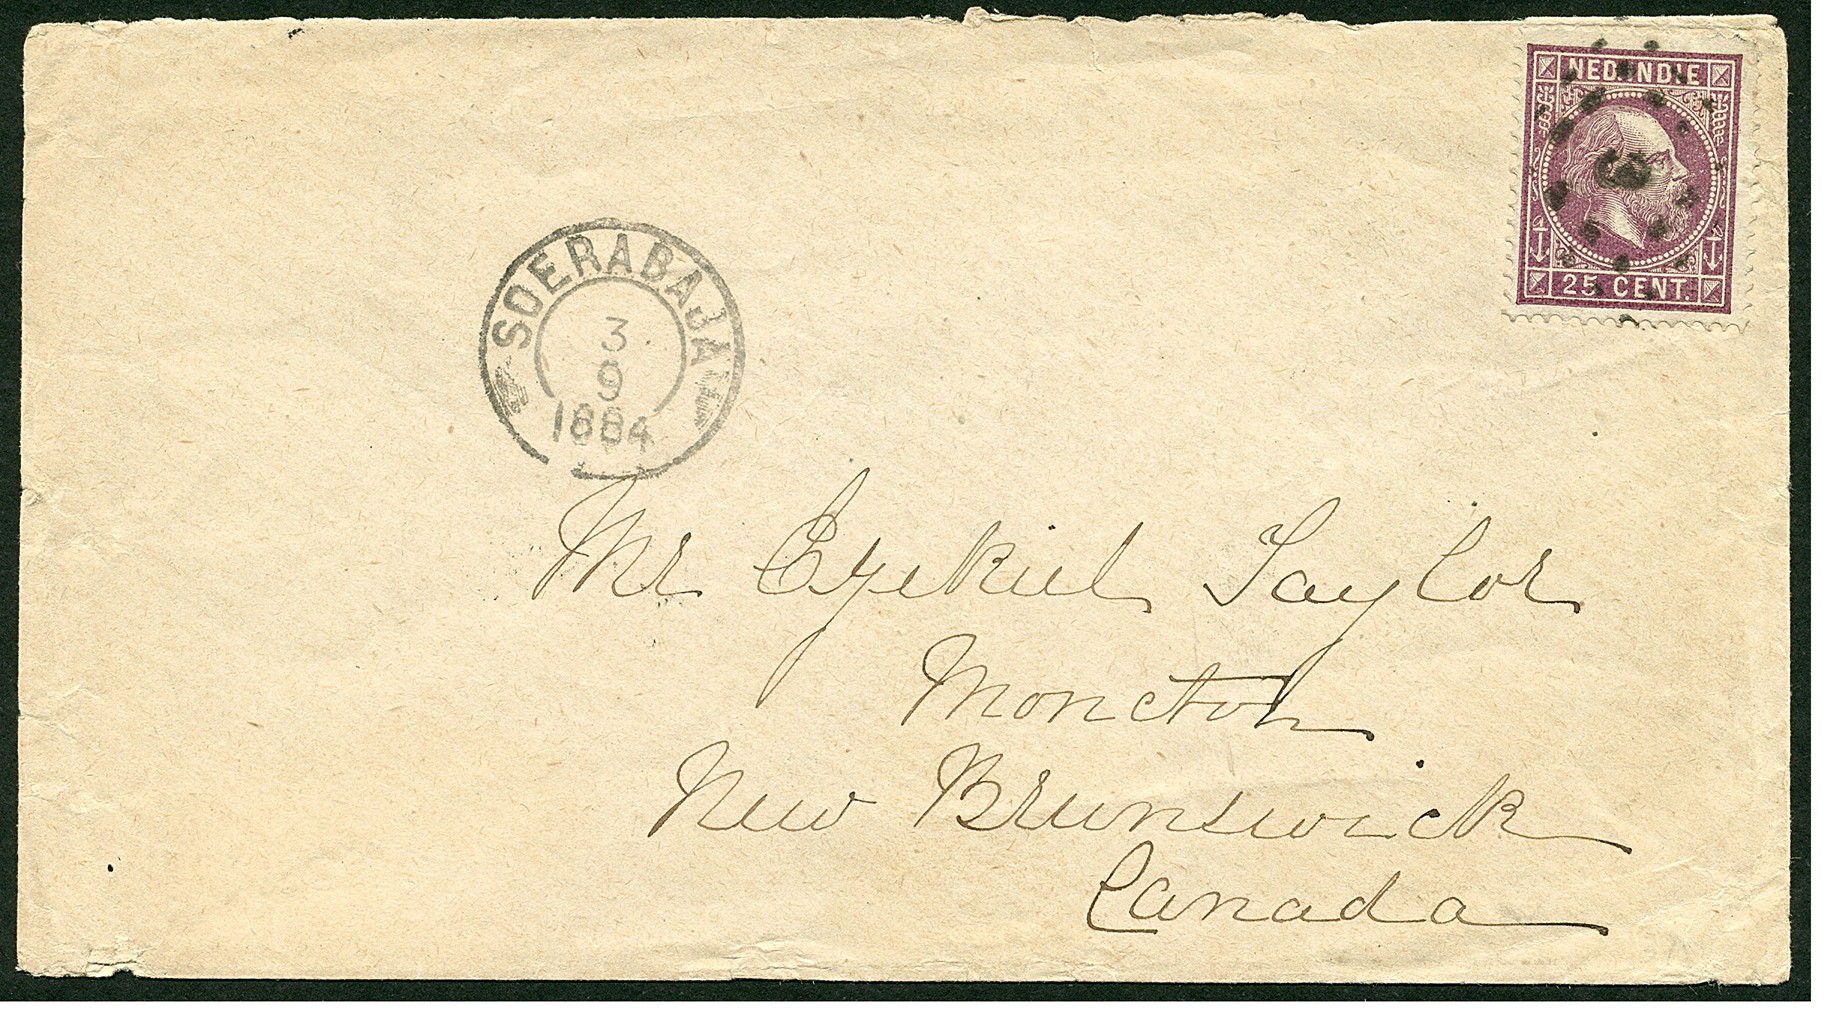 NED. INDIE
3
25 CENT.
SOERABAJA
3
9
1884
Mr Ezekiel Taylor
Moncton
New Brunswick
Canada